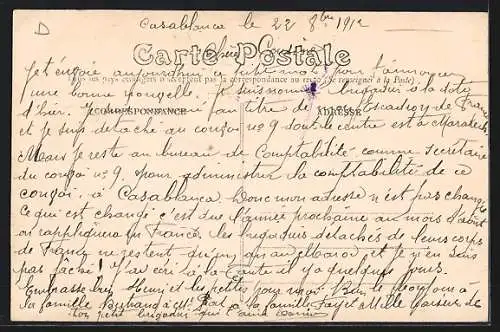 D
Casablanca le 22 8bre 1912
Carte Postale
Cher Cousin
Je t'envoie aujourd'hui ce petit mot pour t'annoncer
Tous les pays étrangers n'acceptent pas la correspondance au recto (Se renseigner à la Poste)
une bonne nouvelle. Je suis nommé brigadier à la date
CORRESPONDANCE
ADRESSE
d'hier. Je au titre de Escadron de France
et je suis détaché au convoi no 9 dont le centre est à Marakech
Mais je reste au bureau de Comptabilité comme secrétaire
du convoi no 9, pour administrer la comptabilité de ce
convoi, à Casablanca. Donc mon adresse n'est pas changée
Ce qui est changé c'est que l'année prochaine au mois d'août
on rappliquera en France. les brigadiers détachés de leurs corps
de France ne restent qu'un an au Maroc et je n'en suis
pas fâché! J'ai écri à la tante il y a quelques jours.
Embrasse bien Henri et les petites pour moi. Bien le bonjour à
la famille à la famille Fay et Melle
Ton petit brigadier qui t'aime